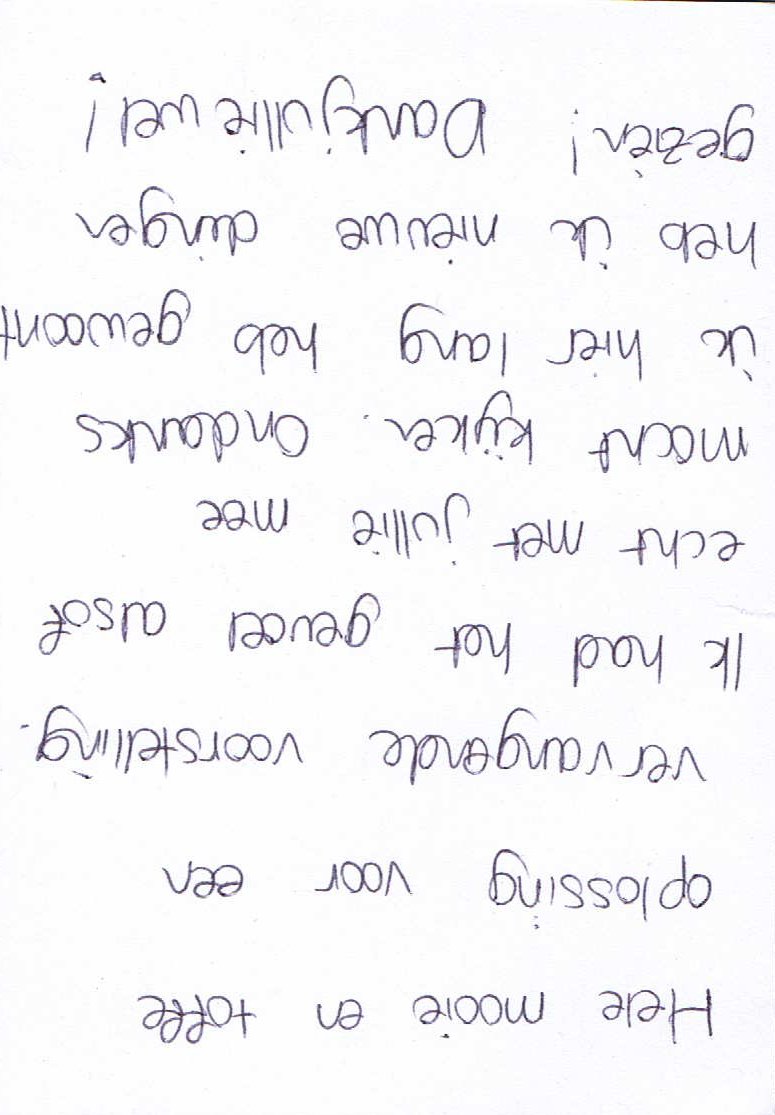 Hele mooie en toffe
oplossing voor een
vervangende voorstelling.
Ik had het gevoel alsof
echt met jullie mee
mocht kijken. Ondanks
ik hier lang heb gewoont
heb ik nieuwe dingen
gezien! Dank jullie wel!